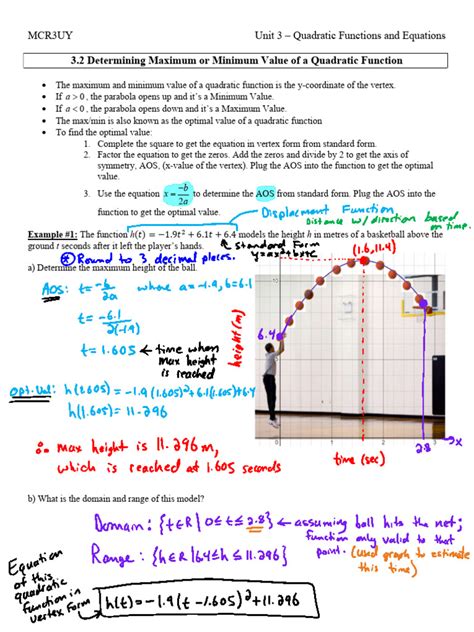 MCR3UY Unit 3 – Quadratic Functions and Equations
3.2 Determining Maximum or Minimum Value of a Quadratic Function
• The maximum and minimum value of a quadratic function is the y-coordinate of the vertex.
• If a > 0, the parabola opens up and it's a Minimum Value.
• If a < 0, the parabola opens down and it's a Maximum Value.
• The max/min is also known as the optimal value of a quadratic function
• To find the optimal value:
1. Complete the square to get the equation in vertex form from standard form.
2. Factor the equation to get the zeros. Add the zeros and divide by 2 to get the axis of
symmetry, AOS, (x-value of the vertex). Plug the AOS into the function to get the optimal
value.
3. Use the equation x = -b/2a to determine the AOS from standard form. Plug the AOS into the
function to get the optimal value.
Displacment Function
Distance w/ direction based
on time.
Example #1: The function h(t) = −1.9t² + 6.1t + 6.4 models the height h in metres of a basketball above the
ground t seconds after it left the player's hands.
standard Form
y=ax²+bx+c
(1.6, 11.4)
* Round to 3 decimal places.
a) Determine the maximum height of the ball.
AOS: t = -b/2a where a=-1.9, b=6.1
t = -6.1/2(-1.9)
t = 1.605 ← time when
max height
is reached
6.4
height (m)
10
Opt. Val: h(1.605) = -1.9(1.605)²+6.1(1.605)+6.4
h(1.605) = 11.296
0
2.8
x
time (sec)
∴ max height is 11.296m,
which is reached at 1.605 seconds
b) What is the domain and range of this model?
Domain: {t∈R | 0≤t≤2.8} ← assuming ball hits the net;
function only valid to that
point. (used graph to estimate
this time)
Range: {h∈R | 6.4≤h≤11.296}
Equation
of this
quadratic
function in
vertex form
h(t) = -1.9(t-1.605)²+11.296